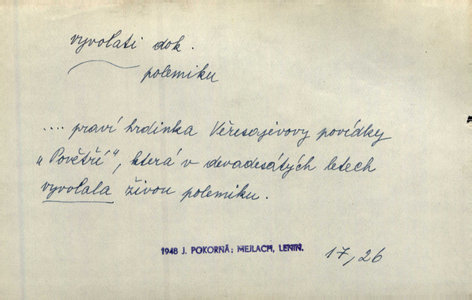 vyvolati dok.
polemiku
.... praví hrdinka Věresajevovy povídky
„Povětří", která v devadesátých letech
vyvolala živou polemiku.
1948 J. POKORNÁ: MEJLACH, LENIN.
17,26